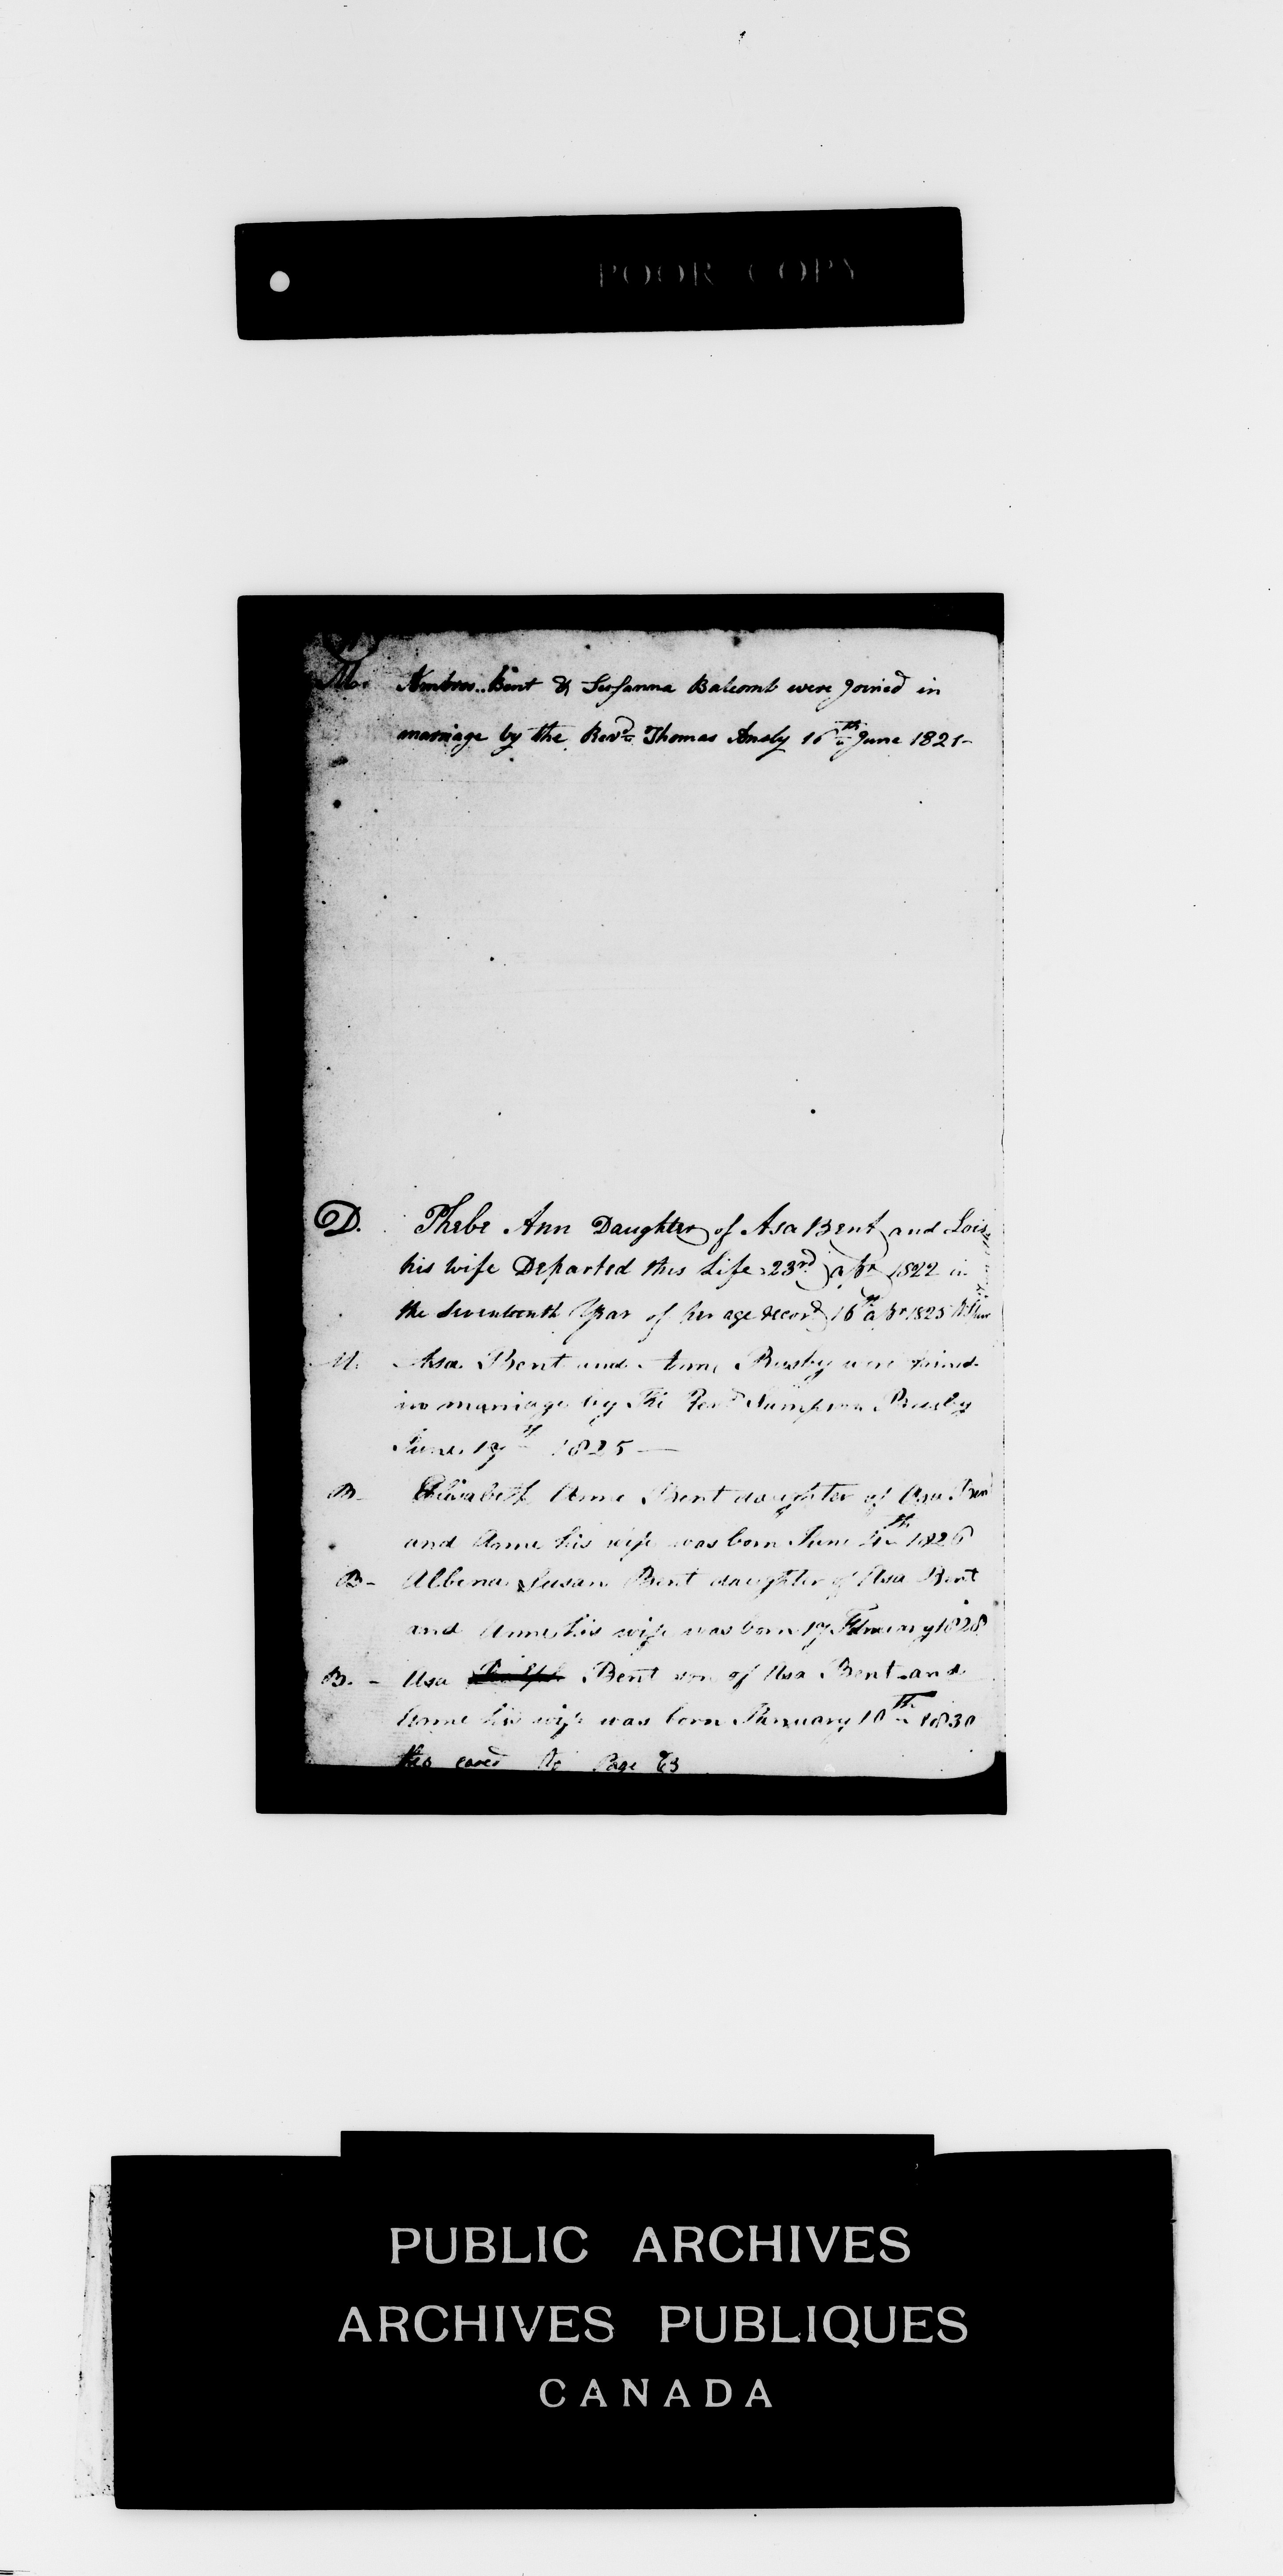 POOR COPY
M. Ambros Bent & Susanna Balcomb were Joined in
marriage by the Revd Thomas Ansly 16th June 1821-
D. Phebe Ann Daughter of Asa Bent and Lois
his wife Departed this Life 23rd apr 1822 in
the Seventeenth Year of her age Record 16th apr 1825
M. Asa Bent and Anne Busby were Joined
in marriage by The Revd Sampson Busby
June 17th 1825 —
B- Elisabeth Anne Bent daughter of Asa Bent
and Anne his wife was born June 1826
B- Albena Susan Bent daughter of Asa Bent
and Anne his wife was born 17 February 1828
B. - Asa Bent son of Asa Bent and
Anne his wife was born January 10th 1830
to Page 63
PUBLIC ARCHIVES
ARCHIVES PUBLIQUES
CANADA